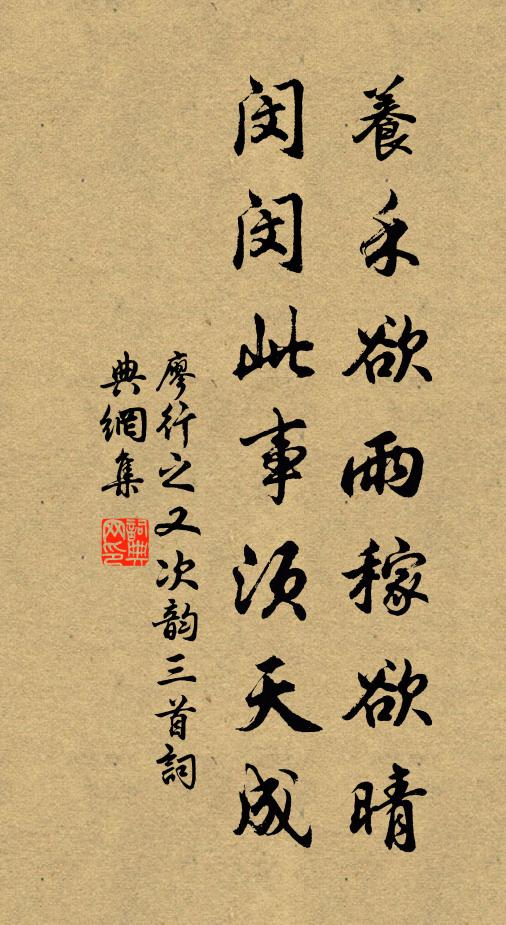 養禾欲雨稼欲晴
閔閔此事須天成
廖行之又次韵三首詞
典網集
詞典網印